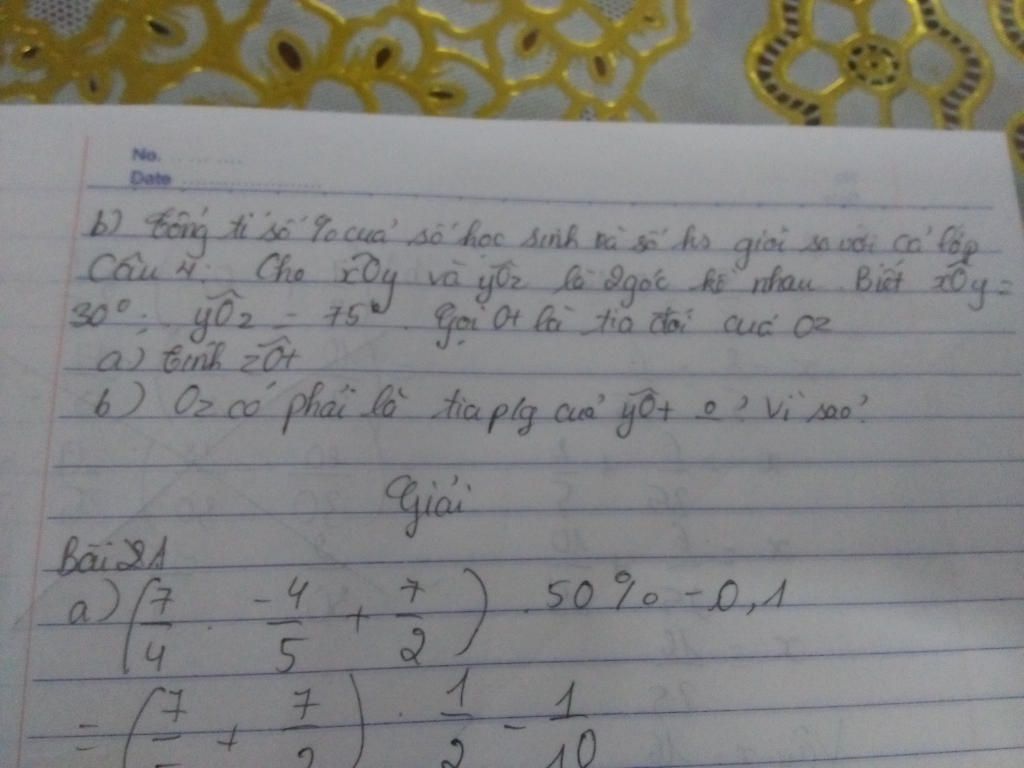 No.
Date
b) tổng tỉ số % của số học sinh và số hs giỏi so với cả lớp
Câu 4: Cho xÔy và yÔz là 2 góc kề nhau. Biết xÔy =
30° ; yÔz = 75°. Gọi Ot là tia đối của Oz
a) tính zÔt
b) Oz có phải là tia p/g của yÔt o? Vì sao?
Giải
Bài 1
a) (7/4 . -4/5 + 7/2) . 50% - 0,1
= (7/ + 7/2) . 1/2 - 1/10